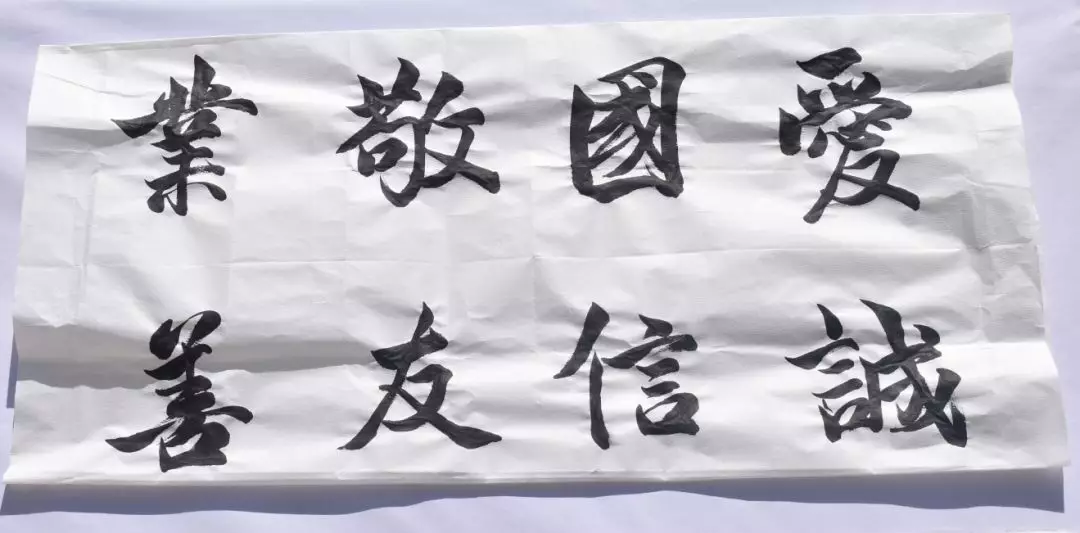 愛國敬業
誠信友善